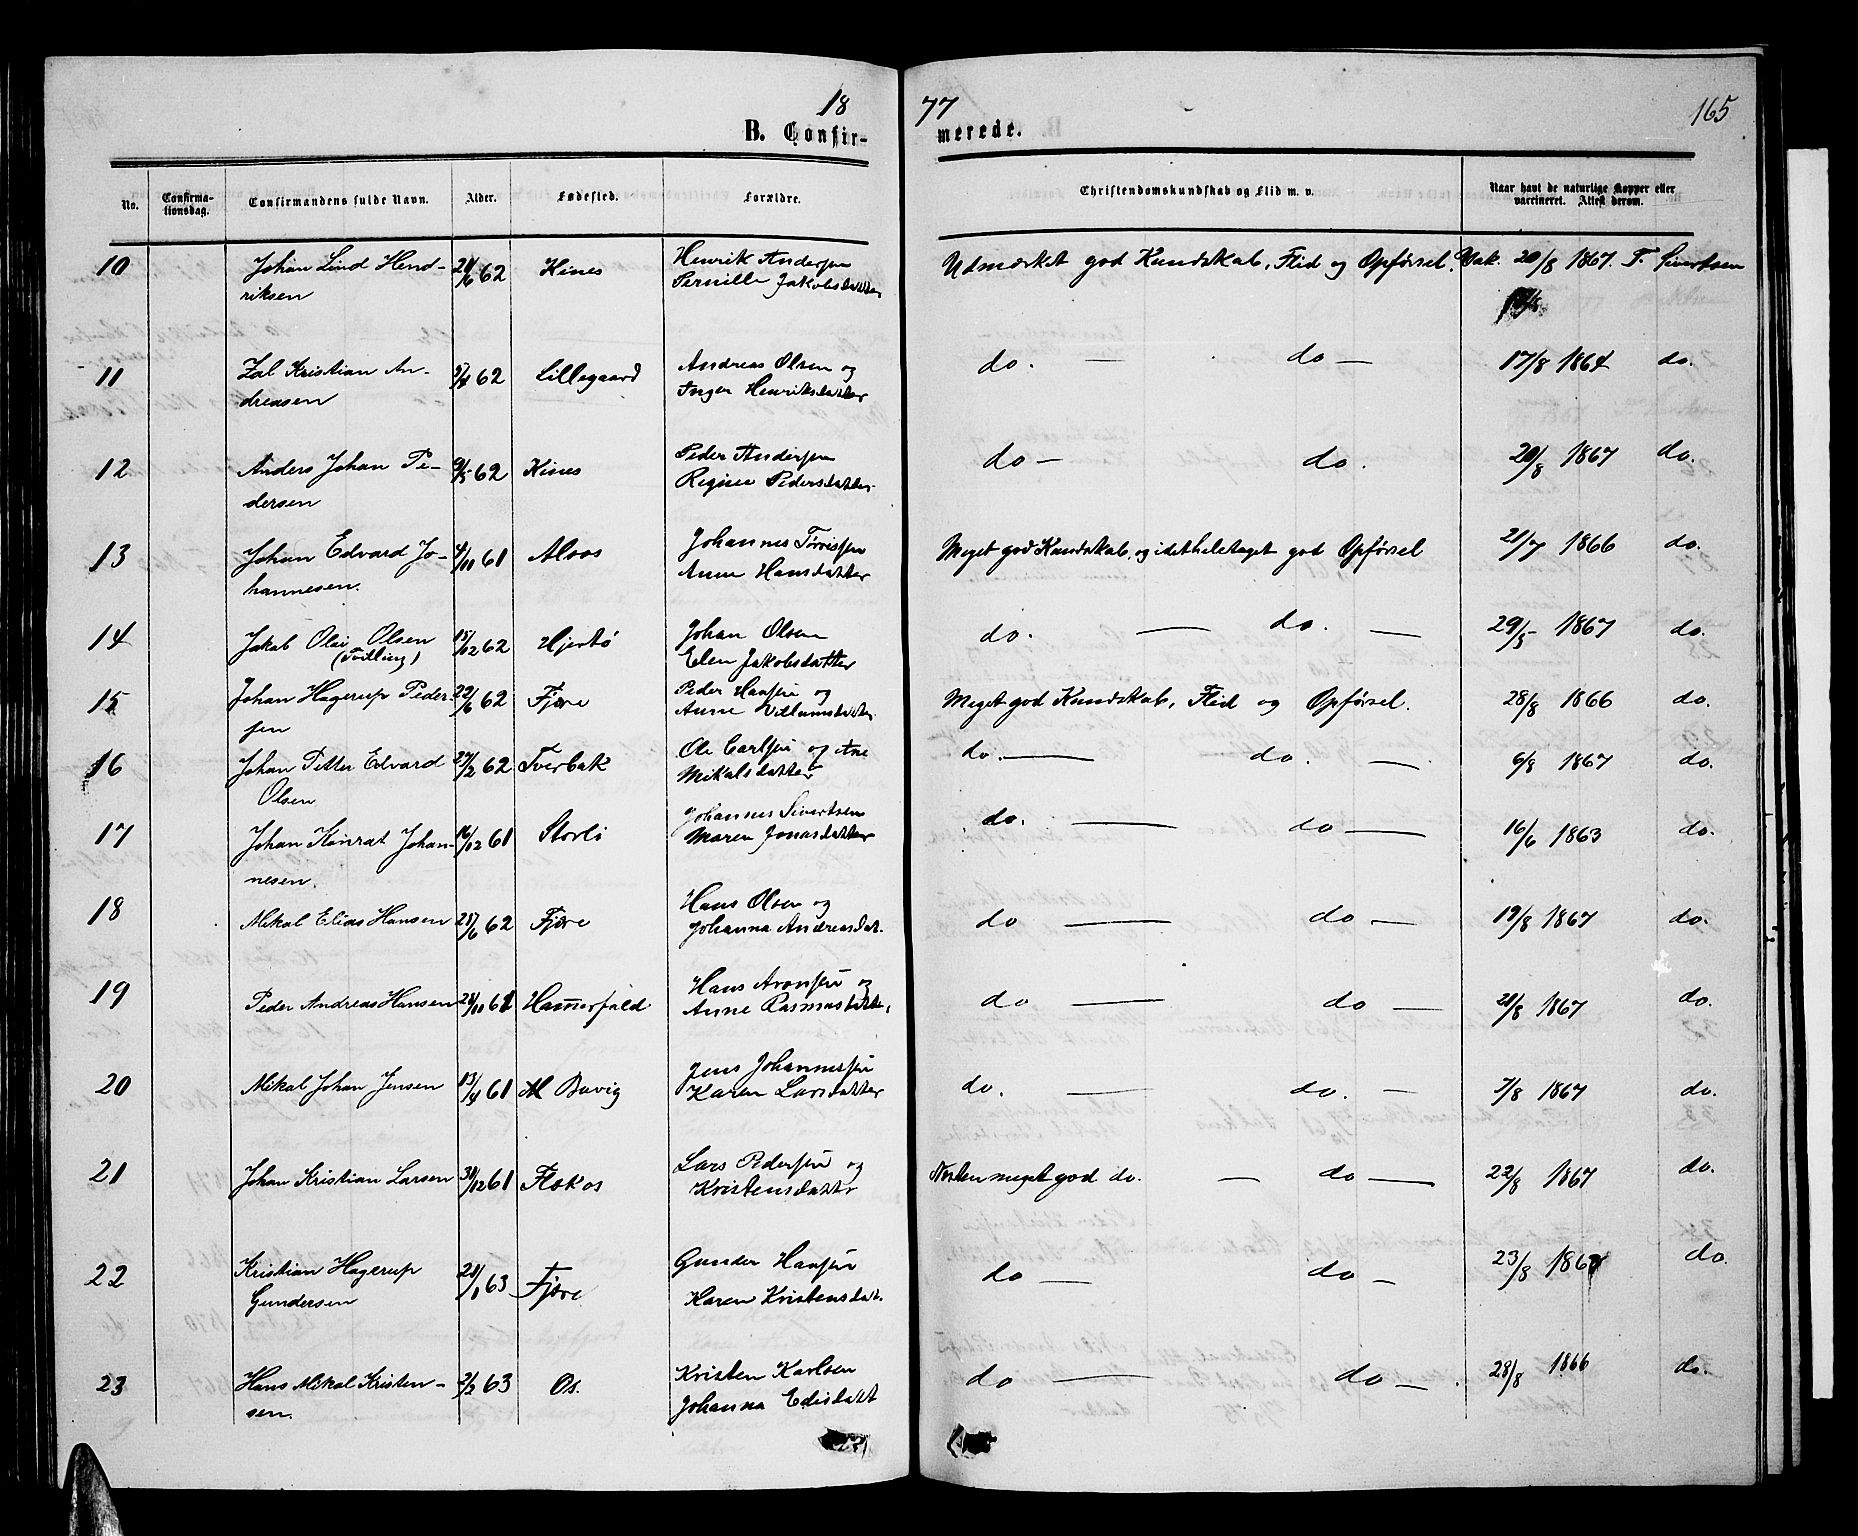 18 77
165
B. Confir- merede.
No. Confirma-tionsdag. Confirmandens fulde Navn. Alder. Fødested. Forældre. Christendomskundskab og Flid m. v. Naar havt de naturlige Kopper eller vaccineret. Attest derom.
10 Johan Lind Hend- 62 Kines Henrik Andersen Udmærket god Kundskab, Flid og Opførsel. Vak. 20/8 1867. F. Sivertsen
riksen Pernille Jakobsdatter
11 Zal Kristian An- 62 Lillegaard Andreas Olsen og do. — do — 17/8 1864 do.
dreasen Inger Henriksdatter
12 Anders Johan Pe- 62 Kines Peder Andersen do — do. 20/8 1867 do.
dersen Regine Pedersdatter
13 Johan Edvard Jo- 4/11 61 Alsos Johannes Tørrissen Meget god Kundskab, og idetheletaget god Opførsel 21/7 1866 do.
hannesen. Anne Hansdatter
14 Jakob Olai Olsen 15/12 62 Hjertø Johan Olsen do. — do. — 29/5 1867 do.
(Tvilling) Elen Jakobsdatter
15 Johan Hagerup Peder- 22/6 62 Fjære Peder Hansen og Meget god Kundskab, Flid og Opførsel. 28/8 1866 do.
sen Anne Villumsdatter
16 Johan Petter Edvard 27/2 62 Tverbak Ole Carlsen og Ane do. — do. — 6/8 1867 do.
Olsen Mikalsdatter
17 Johan Konrat Johan- 16/12 61 Storlö Johannes Sivertsen do. — do — 16/6 1863 do.
nesen. Maren Jonasdatter
18 Mikal Elias Hansen 25/6 62 Fjære Hans Olsen og do — do — 19/8 1867 do.
Johanna Andreasdat.
19 Peder Andreas Hansen 28/11 61 Hamerfald Hans Aronsen og do — do — 21/8 1867 do.
Anne Rasmusdatter
20 Mikal Johan Jensen 13/4 61 M Bovig Jens Johannessen do. — do. — 7/8 1867 do.
Karen Larsdatter
21 Johan Kristian Larsen 31/12 61 Flokos Lars Pedersen og Næsten meget god do. — do — 22/8 1867 do.
Kristensdattr
22 Kristian Hagerup 21/1 63 Fjære Gunder Hansen do — do — 23/8 186 do.
Gundersen Karen Kristensdat.
23 Hans Mikal Kristen- 2/2 63 Os. Kristen Karlsen do — do —. 28/8 1866 do.
sen. Johanna Edisdatt